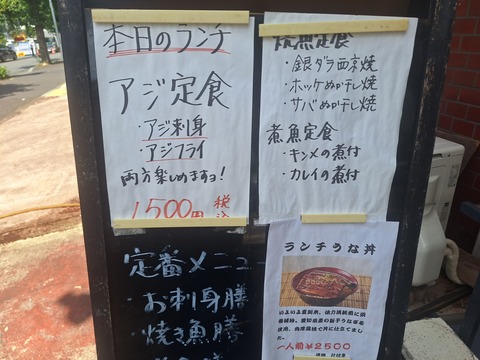 本日のランチ
アジ定食
・アジ刺身
・アジフライ
両方楽しめますョ!
1500円 税込
焼魚定食
・銀ダラ西京焼
・ホッケぬか干し焼
・サバぬか干し焼
煮魚定食
・キンメの煮付
・カレイの煮付
定番メニュー
・お刺身膳
・焼き魚膳
ランチうな丼
一人前¥2500